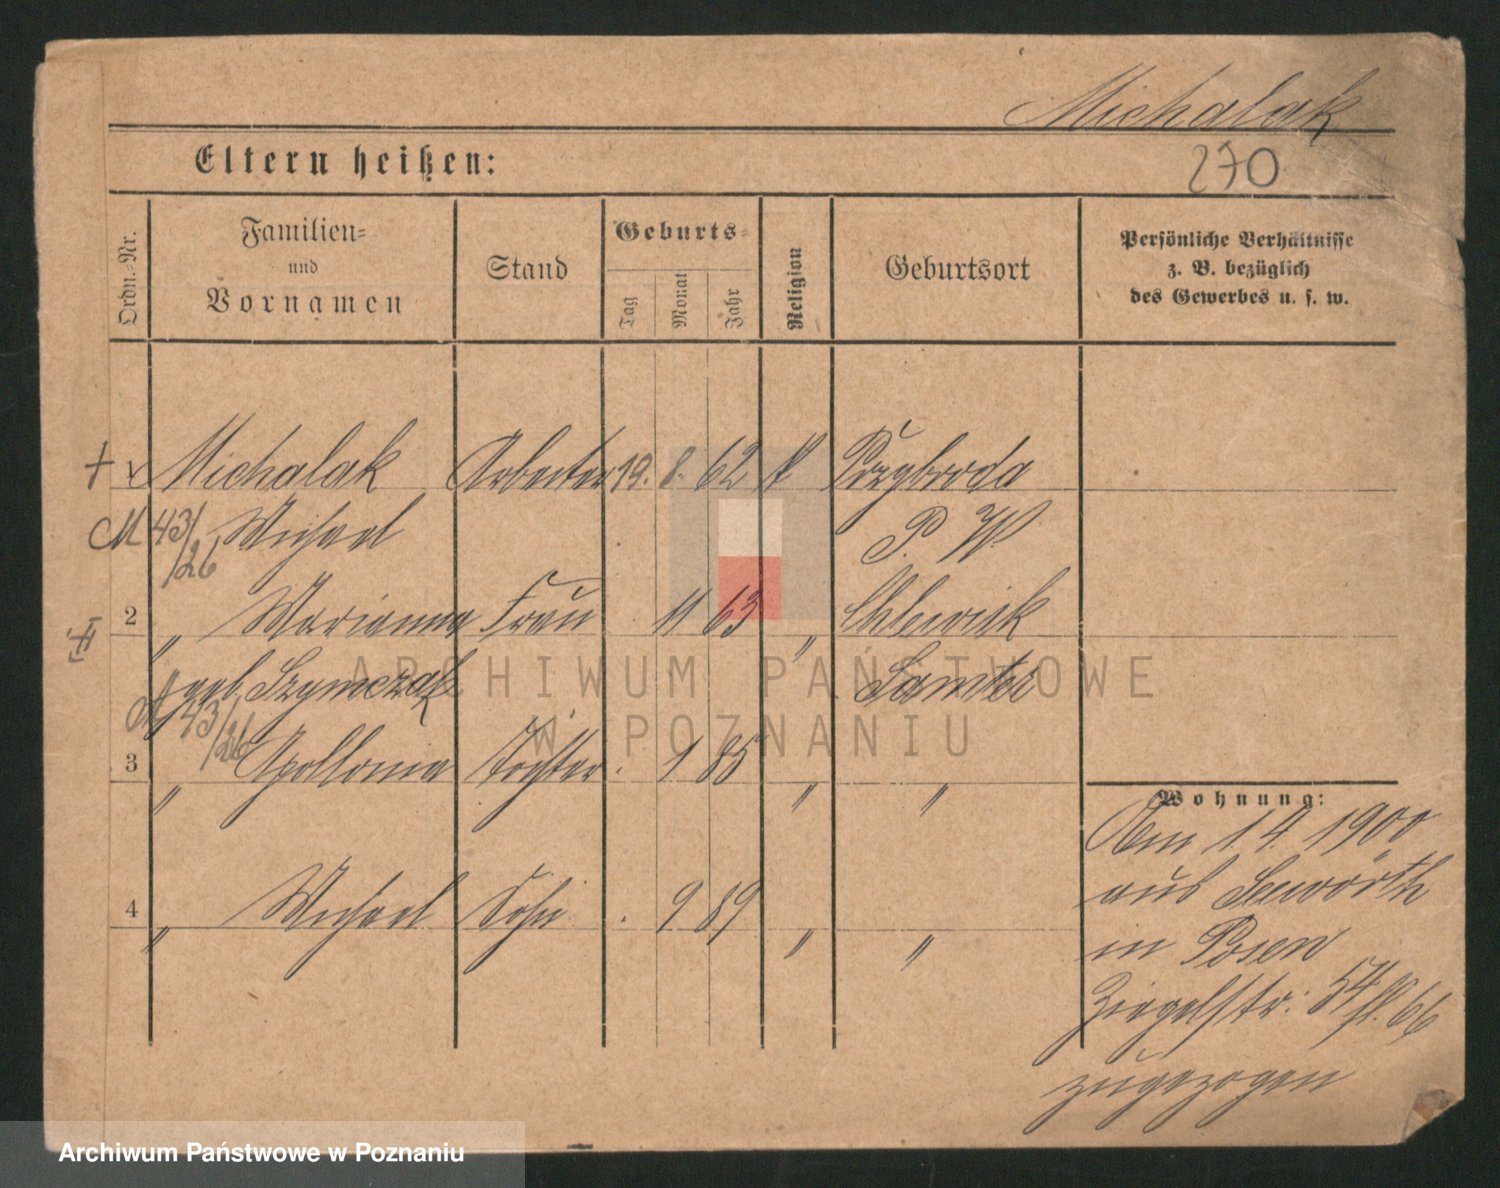 Michalak
Eltern heißen:
270
Ordn.-Nr.
Familien-
und
Vornamen
Stand
Geburts-
Tag
Monat
Jahr
Religion
Geburtsort
Persönliche Verhältnisse
z. B. bezüglich
des Gewerbes u. s. w.
Michalak Arbeiter 19. 8. 62 k Przybroda
M 43/26 Michael P. W.
2 " Marianna Frau 11 63 "
geb. Szymczak Samter
M 43/26
3 " Apollonia Tochter 1 85 " "
4 " Michael Sohn 9 89 " "
Wohnung:
Am 1.4.1900
aus
in Posen
Ziegelstr. 54
zugezogen
ARCHIWUM PAŃSTWOWE
W POZNANIU
Archiwum Państwowe w Poznaniu